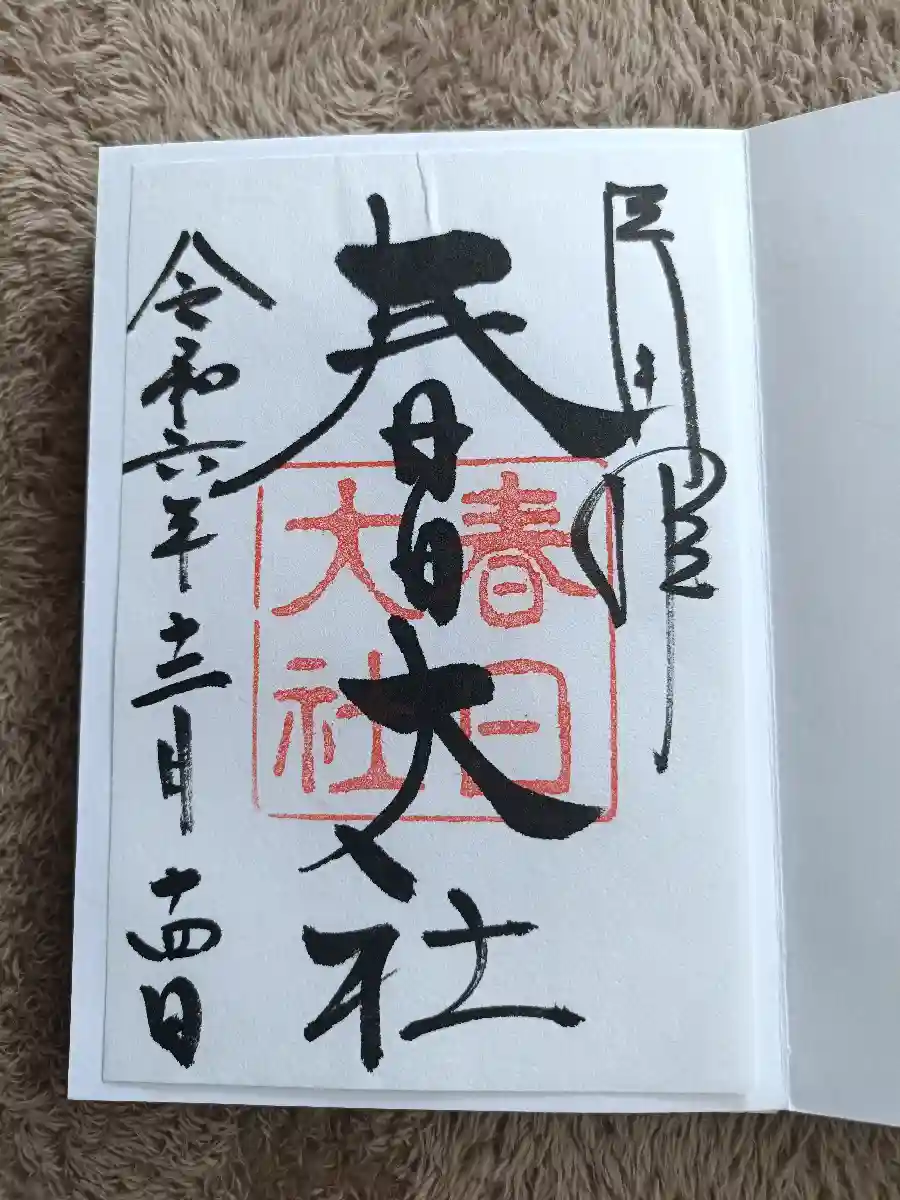 春日大社
春日
大社
令和六年十二月十四日